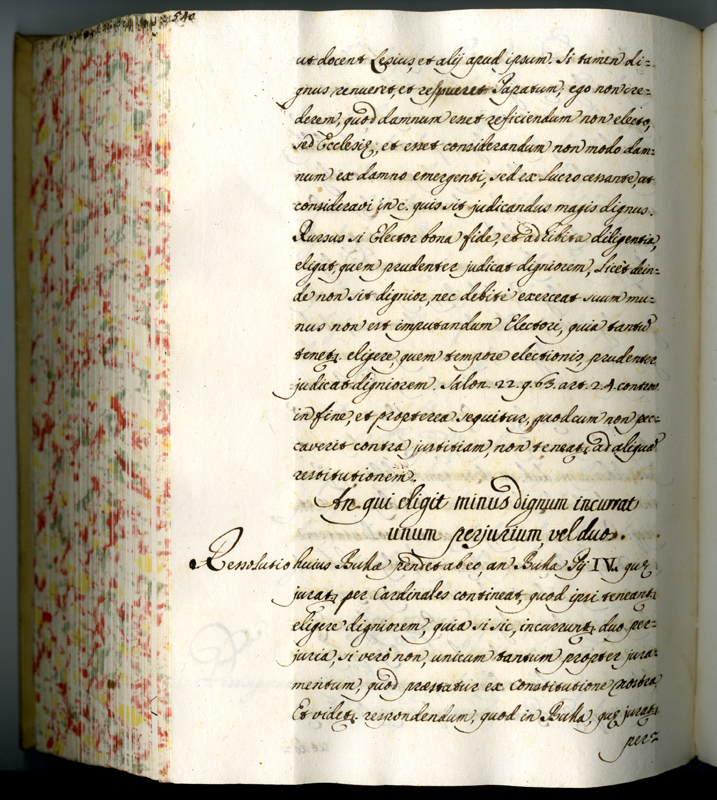 540
ut docent Lesius et alij apud ipsum. Si tamen di=
gnus renueret, et respueret Papatum, ego non cre=
derem, quod damnum esset reficiendum non electo,
sed Ecclesiȩ, et esset considerandum non modo dam=
num ex damno emergenti, sed ex lucro cessante, ut
consideravi in c. quis sit judicandus magis dignus.
Rursus si Elector bona fide, et adhibita diligentia,
eligat, quem prudenter judicat digniorem, licèt dein=
de non sit dignior, nec debitè exerceat suum mu=
nus non est imputandum Electori, quia tantũ
tenetr. eligere, quem tempore electionis, prudenter
judicat digniorem. Salon. 22. q. 63. art. 2. 4. controv.
in fine, et propterea sequitur, quod cum non pec=
caverit contra justitiam, non teneatr. ad aliquã
restitutionem.
An qui eligit minus dignum incurrat
unum perjurium, vel duo.
Ressolutio huius Bulla pendet ab eo, an Bulla Pij IV. quȩ
juratr. per Cardinales contineat, quod ipsi teneantr.
eligere digniorem, quia si sic, incurruntr. duo per=
juria, si verò non, unicum tantum propter jura=
mentum, quod præstatur ex Constitutione nostra.
Et videtr. respondendum, quod in Bulla, quȩ juratr.
per=